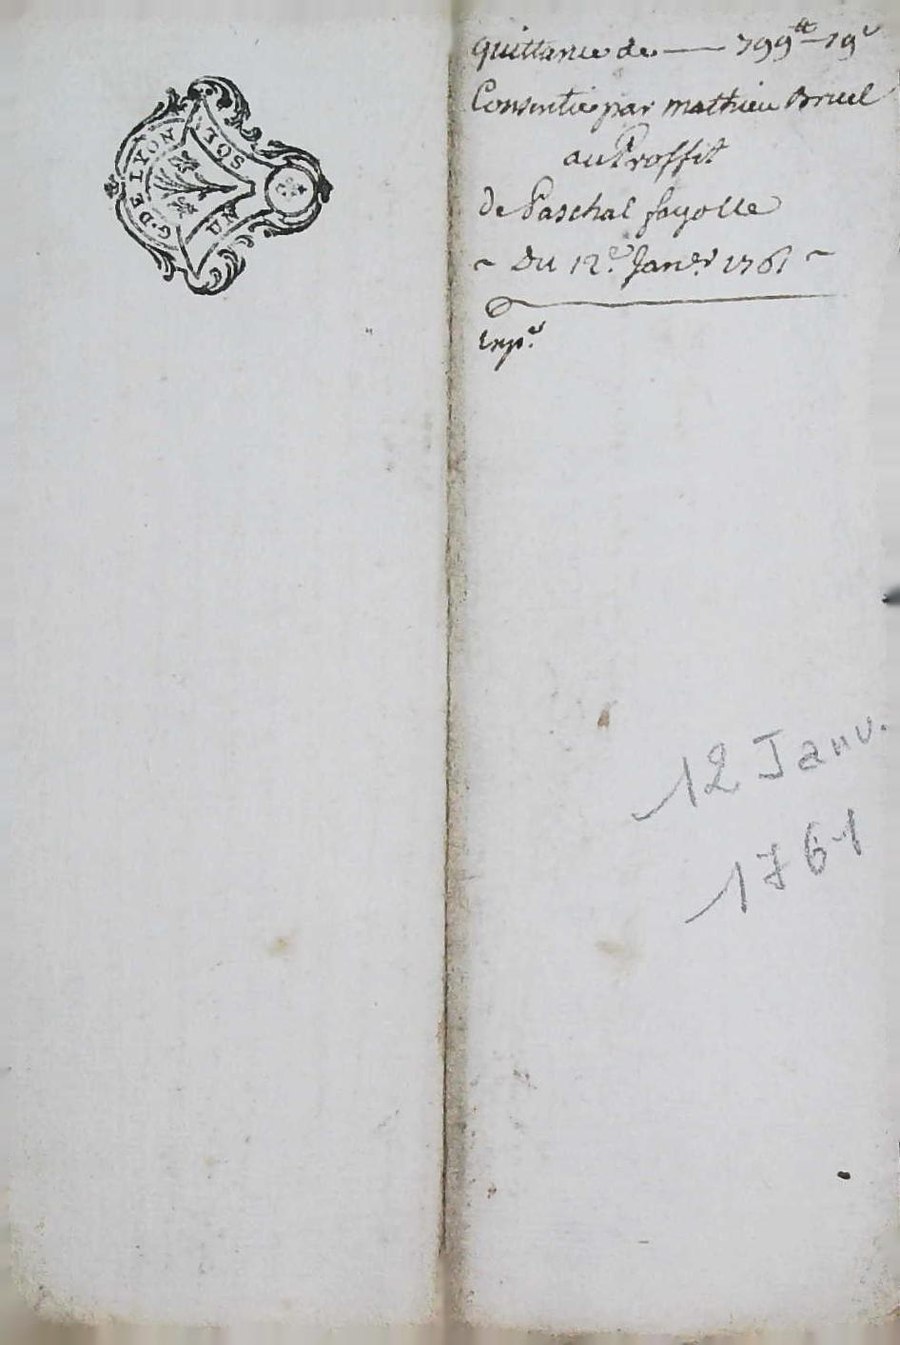 G. DE LYON
UN SOL
quittance de — 799ᵗᵗ–19ˢ
Consentie par mathieu Bruel
au Proffit
de Paschal fayolle
~ Du 12.ᵉ Janᵉʳ 1761 ~
Exp.ᵉ
12 Janv.
1761